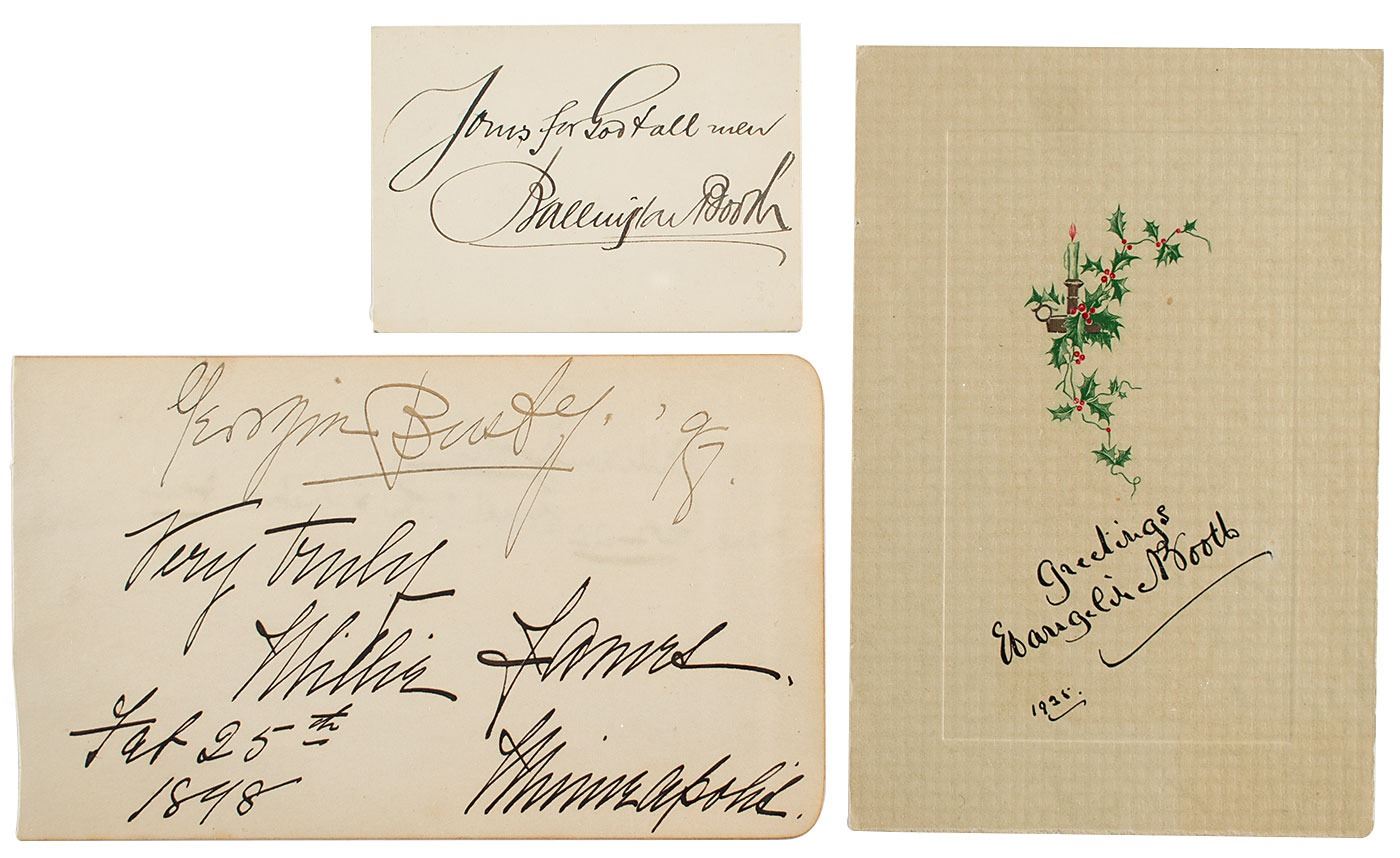 Yours for God & all men
Ballington Booth
Georgia Busby. '97.
Very truly
Millie James.
Feb 25th
1898
Minneapolis.
Greetings
Evangeline Booth
1925.